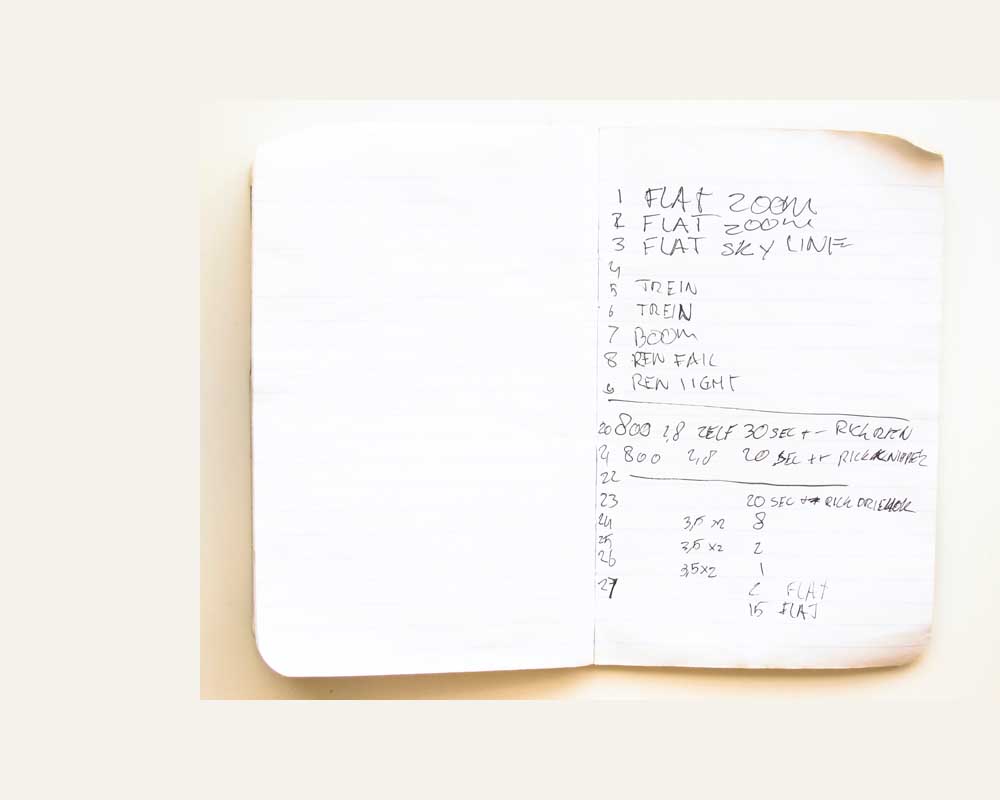 1 FLAT ZOOM
2 FLAT ZOOM
3 FLAT SKY LINE
4
5 TREIN
6 TREIN
7 BOOM
8 REN FAIL
REN LIGHT
20 800 2,8 ZELF 30 SEC +- RICK
21 800 2,8 20 SEC +- RICK KNIPPER
22
23 20 SEC RICK DRIEHOK
24 3,5 x2 8
25 3,5 x2 2
26 3,5x2 1
27 2 FLAT
15 FLAT